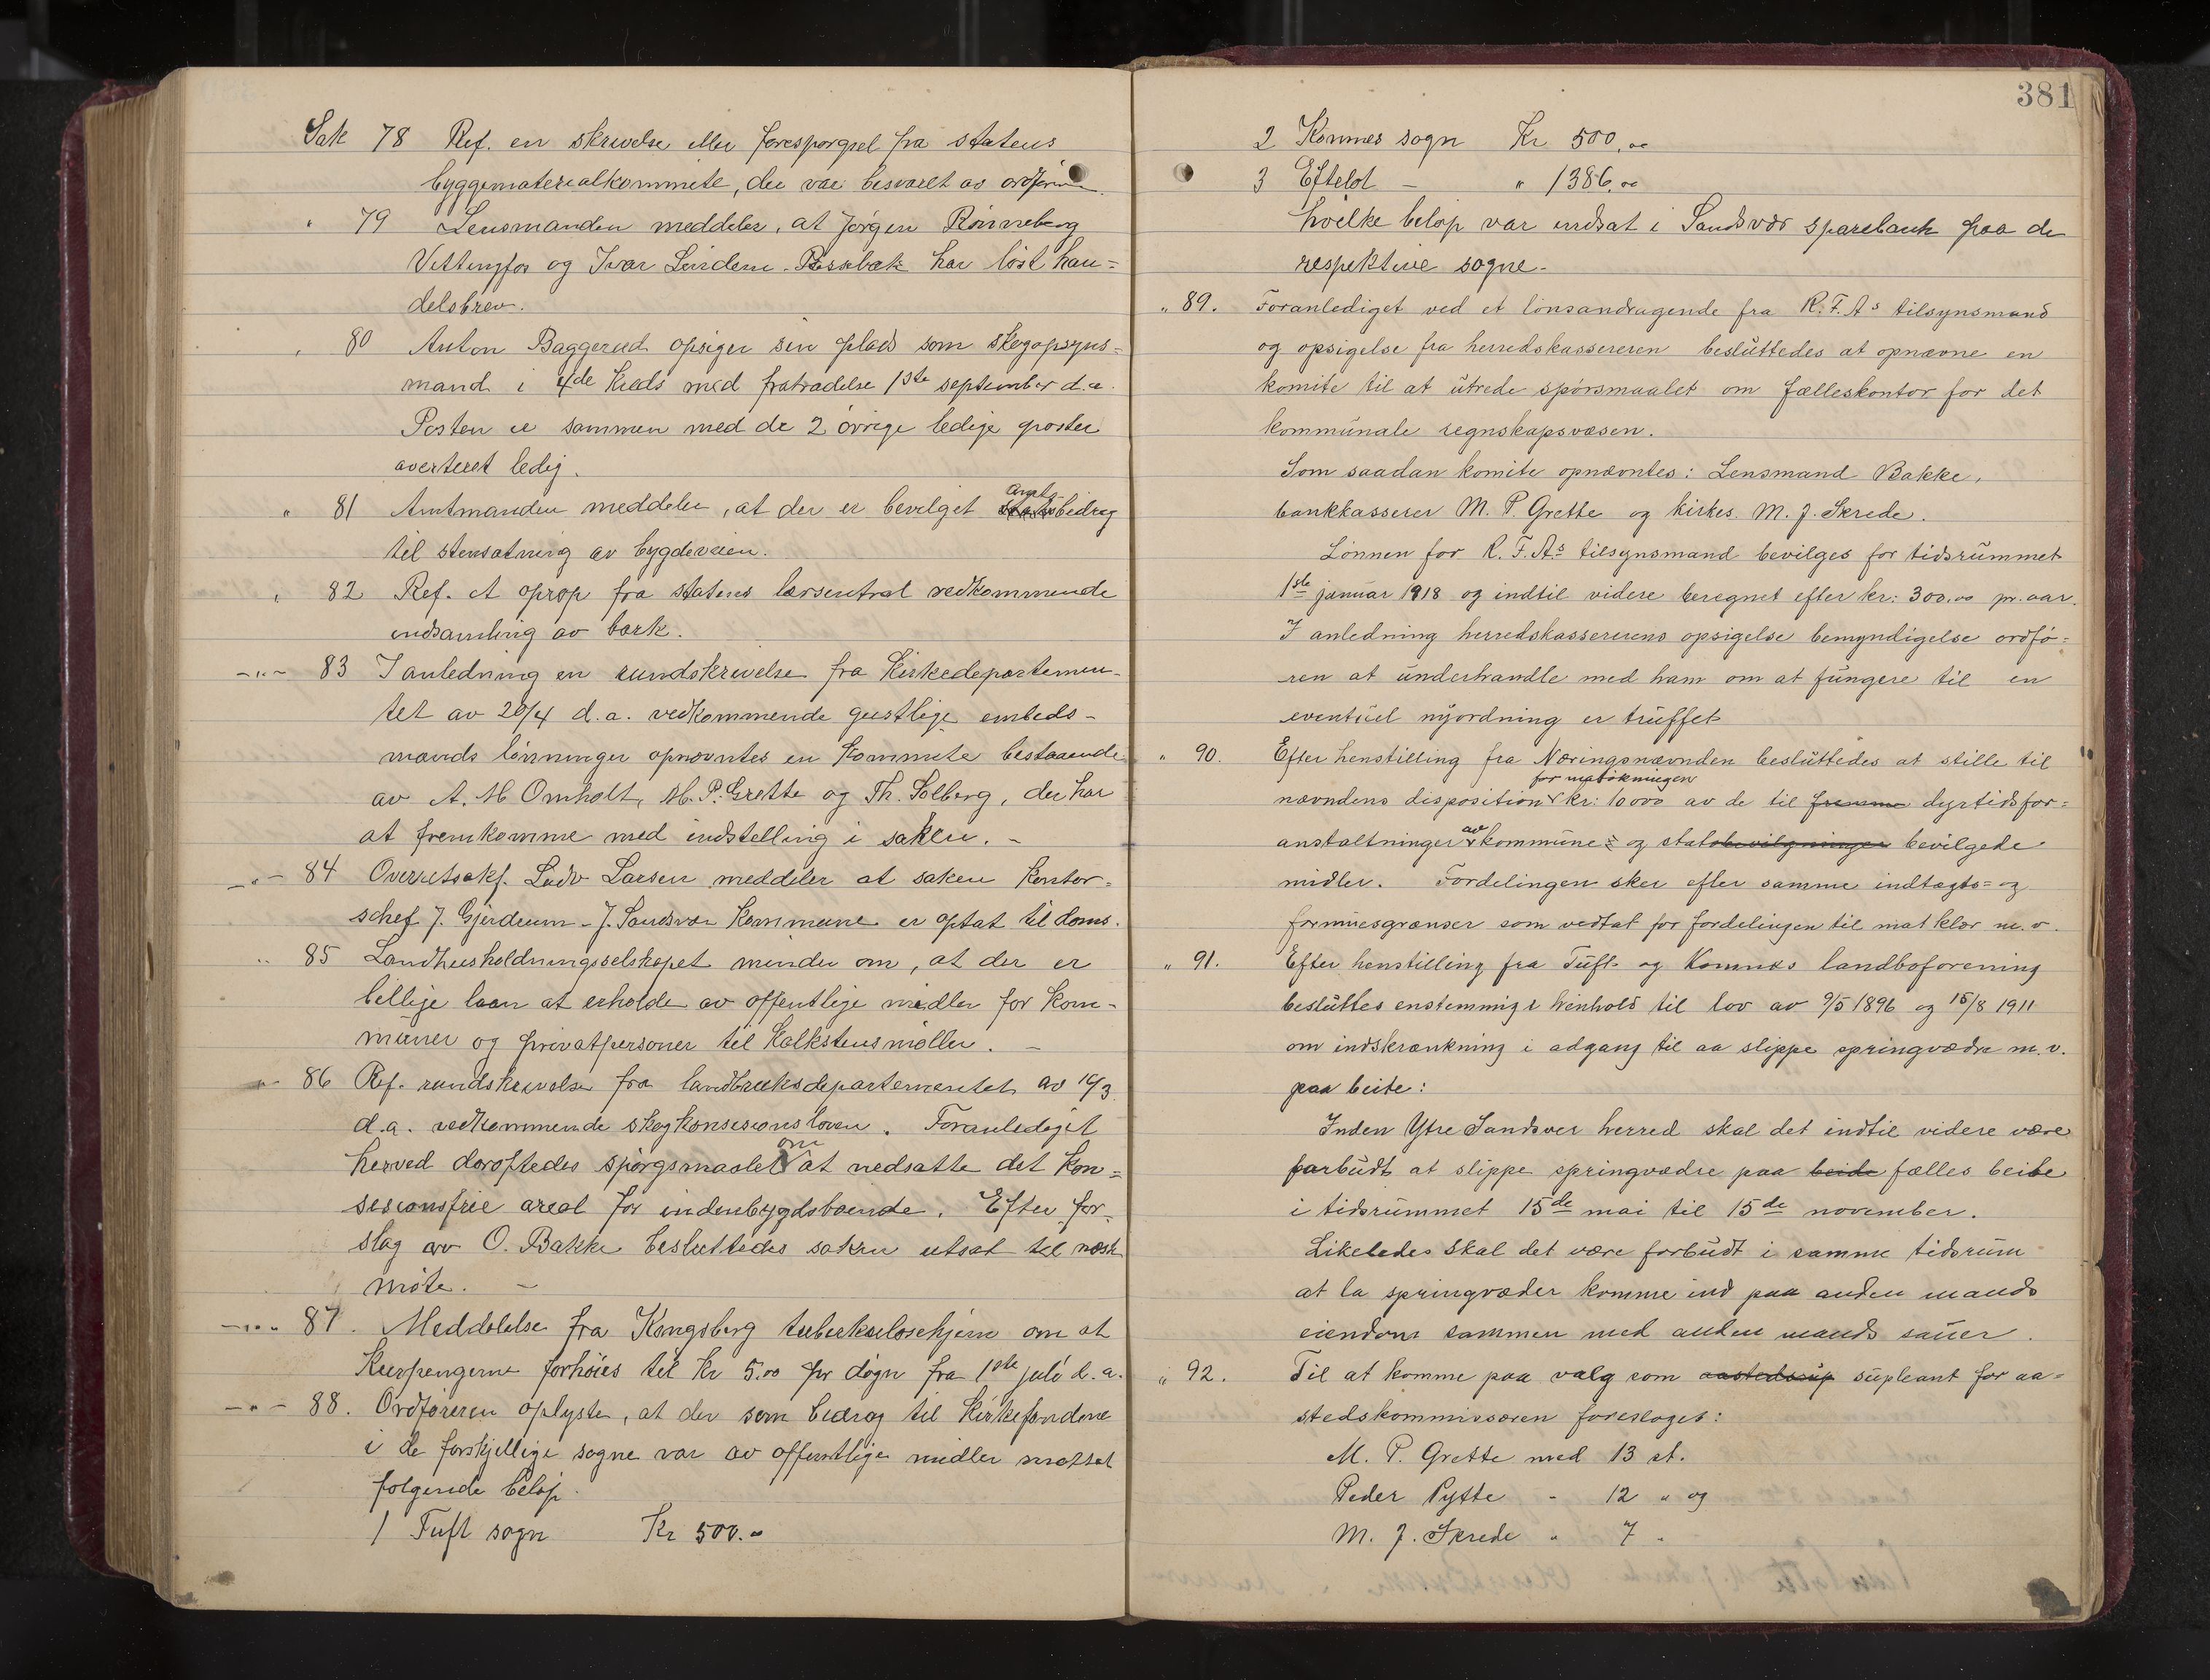 Sak 78 Ref. en skrivelse eller forespørgsel fra statens
byggematerialkommité, der var besvaret av ordføreren.
" 79 Lensmanden meddeler, at Jørgen Rønneberg
Vittingfos og Ivar Lindem Passebæk har løst han=
delsbrev.
" 80 Anton Baggerud opsiger sin plads som skogopsyns=
mand i 4de kreds med fratrædelse 1ste september d.a.
Posten er sammen med de 2 øvrige ledige poster
averteret ledig.
" 81 Amtmanden meddeler, at der er bevilget amts-bidrag
til stensætning av bygdeveien.
" 82 Ref. et oprop fra statens lærsentral vedkommende
indsamling av bark.
-"- 83 I anledning en rundskrivelse fra Kirkedepartemen-
tet av 20/4 d.a. vedkommende geistlige embeds-
mænds lønninger opnævntes en kommite bestaaende
av A. M Omholt, M. P. Grette og Th. Solberg, der har
at fremkomme med indstelling i saken. -
-"- 84 Overretssakf. Ludv Larsen meddeler at saken Kontor=
schef J. Gjerdrum - Y. Sandsvær kommune er optat til doms.
" 85 Landhusholdningsselskapet minder om, at der er
billige laan at erholde av offentlige midler for kom-
muner og privatpersoner til kalkstensmøller. -
" 86 Ref. rundskrivelse fra landbruksdepartementet av 16/3
d.a. vedkommende skogkonsesionsloven. Foranlediget
herved drøftedes spørgsmaalet om at nedsætte det kon=
sesionsfrie areal for indenbygdsboende. Efter for-
slag av O. Bakke besluttedes saken utsat til næste
møte. -
-"- 87. Meddelelse fra Kongsberg tuberkulosehjem om at
Kurpengerne forhøies til kr 5.00 pr døgn fra 1ste juli d.a.
-"- 88. Ordføreren oplyste, at der som bidrag til kirkefondene
i de forskjellige sogne var av offentlige midler indsat
følgende beløp.
1 Tuft sogn Kr 500.00
381
2 Komnes sogn Kr 500,00
3 Efteløt - " 1386,00
hvilke beløp var indsat i Sandsvær sparebank paa de
respektive sogne.
" 89. Foranlediget ved et lønsandragende fra R.F.As tilsynsmand
og opsigelse fra herredskassereren besluttedes at opnævne en
komite til at utrede spørsmaalet om fælleskontor for det
kommunale regnskapsvæsen.
Som saadan komite opnævntes: Lensmand Bakke,
bankkasserer M. P. Grette og kirkes. M. J. Skrede.
Lønnen for R.F.As tilsynsmand bevilges for tidsrummet
1ste januar 1918 og indtil videre beregnet efter kr: 300.00 pr. aar.
I anledning herredskassererens opsigelse bemyndigelse ordfø=
ren at underhandle med ham om at fungere til en
eventuel nyordning er truffet
" 90. Efter henstilling fra Næringsnævnden besluttedes at stille til
for matøkningen
nævndens disposition kr: 10000 av de til fremme dyrtidsfor=
anstaltninger av kommune og statsbevilgninger bevilgede
midler. Fordelingen sker efter samme indtægts= og
formuesgrænser som vedtat for fordelingen til mat klær m.v.
" 91. Efter henstilling fra Tuft- og Komnes landboforening
besluttes enstemmig i henhold til lov av 9/5 1896 og 15/8 1911
om indskrænkning i adgang til aa slippe springvædre m.v.
paa beite:
Inden Ytre Sandsvær herred skal det indtil videre være
forbudt at slippe springvædre paa beide fælles beite
i tidsrummet 15de mai til 15de november.
Likeledes skal det være forbudt i samme tidsrum
at la springvæder komme ind paa anden mands
eiendom sammen med anden mands sauer.
" 92. Til at komme paa valg som aastedssup supleant for aa=
stedskommissæren foresloges:
M. P. Grette med 13 st.
Peder Pytte - 12 " og
M. J. Skrede " 7 "